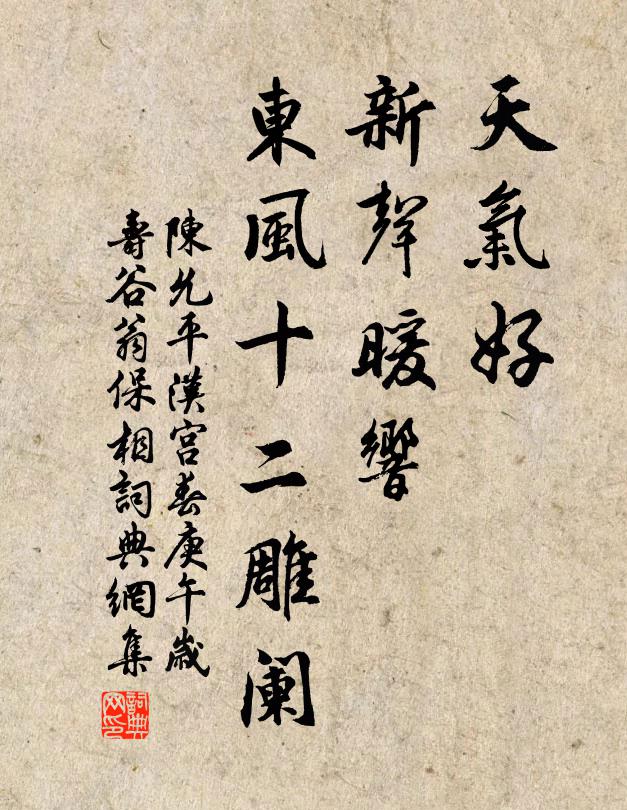 天氣好
新聲暖響
東風十二雕闌
陳允平漢宮春庚午歲
壽谷翁保相詞典網集
詞典网印